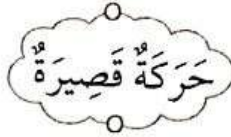 حَرَكَةٌ قَصِيرَةٌ